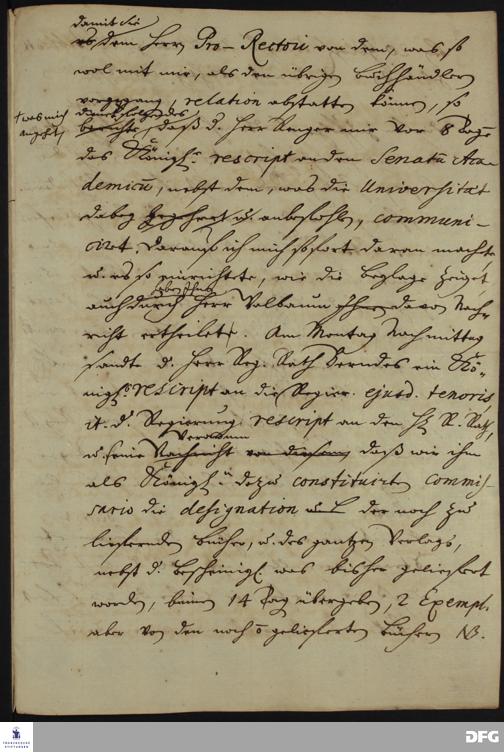 damit Sie
es dem Herrn Pro-Rectori von dem, was so
wol mit mir, als den übrigen Buchhändlern
vorgegangen, relation abstatten können, so
+ was mich
angeht,
berichte, daß d. Herr Renger mir vor 8 Tagen
das Königl. rescript an den Senatu Aca-
demicu, nebst dem, was die Universität
dabey u. anbefohlen, communi-
cirt. Darauf ich mich sofort daran machte,
u. es so einrichtete, wie die Beylage zeiget
auch durch Herr Valbaum davon Nach-
richt ertheilet. Am Montag Nachmittag
sandte d. Herr Reg. Rath ein Kö-
nigl. rescript an die Regier. ejusd. tenoris
it. d. Regierung rescript an den H. R. Rath
Verordn
u. seine Nachricht von diesem daß wir ihm
als Königl. dazu constituirten commis-
sario die designation der noch zu
liefernden bücher, u. des gantzen Verlags,
nebst d. bescheinig. was bisher geliefert
worden, binnen 14 Tag übergeben, 2 Exempl.
aber von den noch gelieferten büchern NB.
FRANCKESCHE STIFTUNGEN
DFG